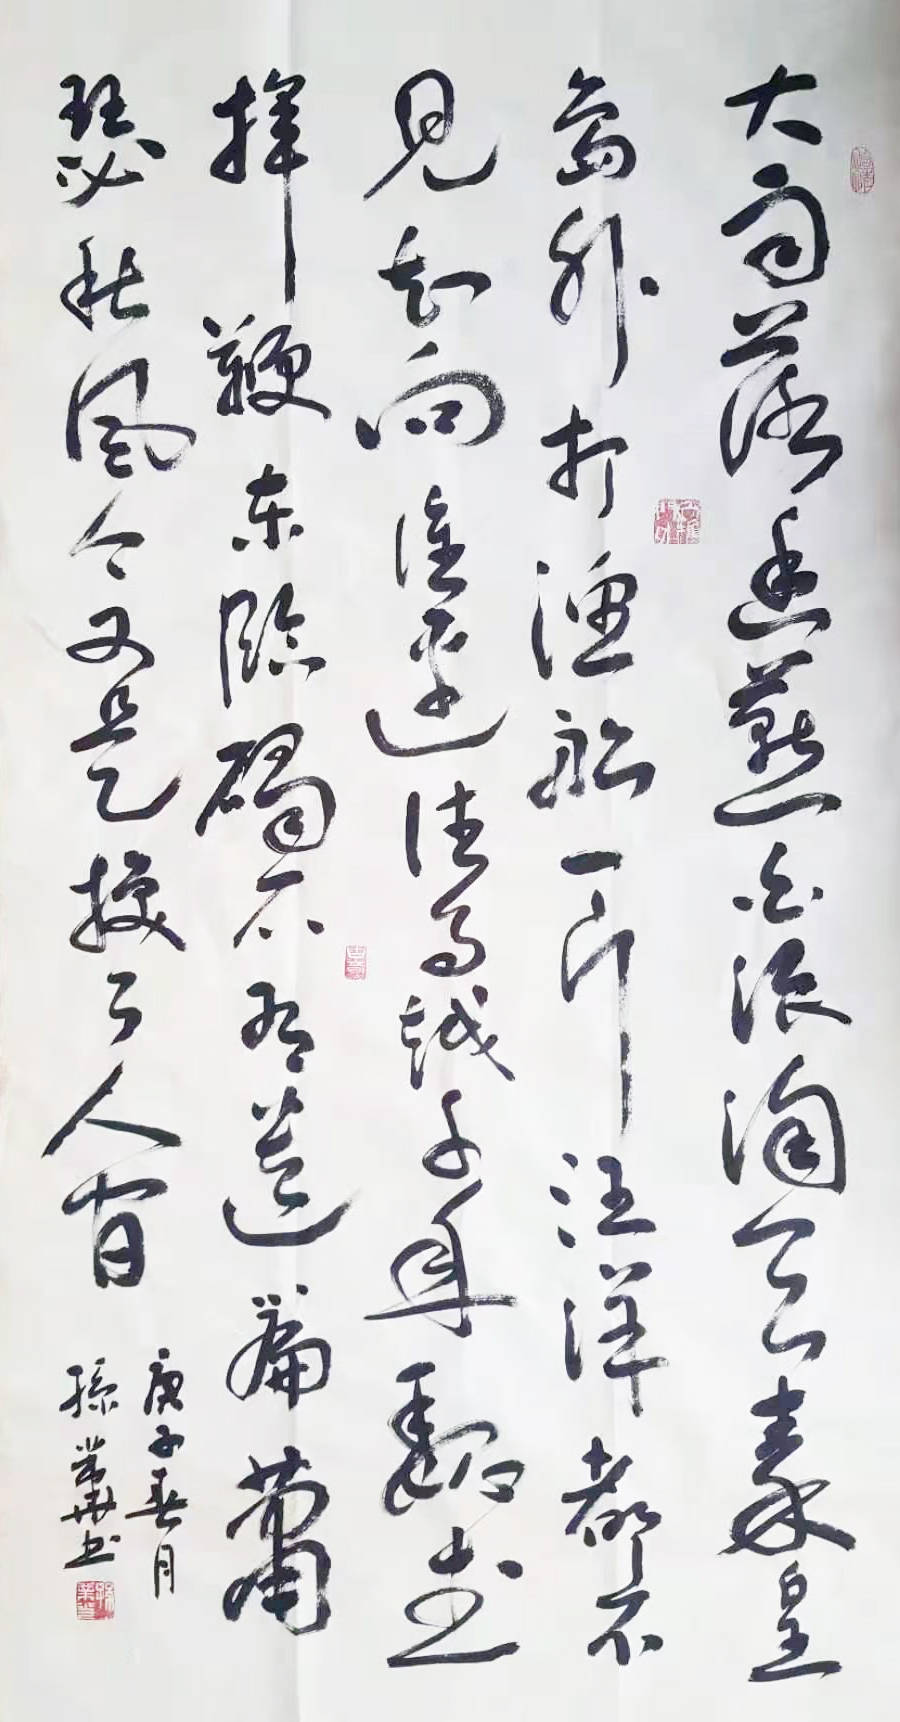 大雨落幽燕白浪滔天秦皇
岛外打渔船一片汪洋都不
见知向谁边往事越千年魏武
挥鞭东临碣石有遗篇萧
瑟秋风今又是换了人间
庚子春月
孫书